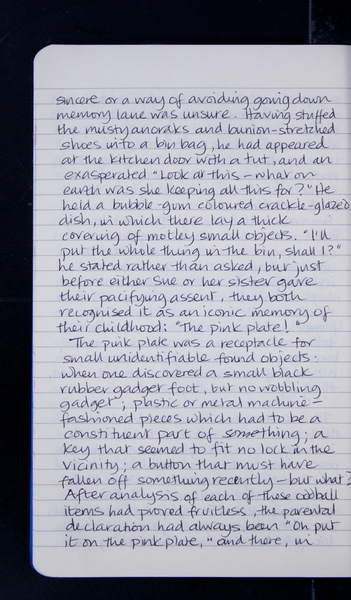 sincere or a way of avoiding going down
memory lane was unsure. Having stuffed
the musty anoraks and bunion-stretched
shoes into a bin bag, he had appeared
at the kitchen door with a tut, and an
exasperated "Look at this - what on
earth was she keeping all this for?" He
held a bubble-gum coloured crackle-glazed
dish, in which there lay a thick
covering of motley small objects. "I'll
put the whole thing in the bin, shall I?"
he stated rather than asked, but just
before either Sue or her sister gave
their pacifying assent, they both
recognised it as an iconic memory of
their childhood: "The pink plate!"
The pink plate was a receptacle for
small unidentifiable found objects:
when one discovered a small black
rubber gadget foot, but no wobbling
gadget; plastic or metal machine-
fashioned pieces which had to be a
constituent part of something; a
key that seemed to fit no lock in the
vicinity; a button that must have
fallen off something recently - but what?
After analysis of each of these oddball
items had proved fruitless, the parental
declaration had always been "Oh put
it on the pink plate," and there, in